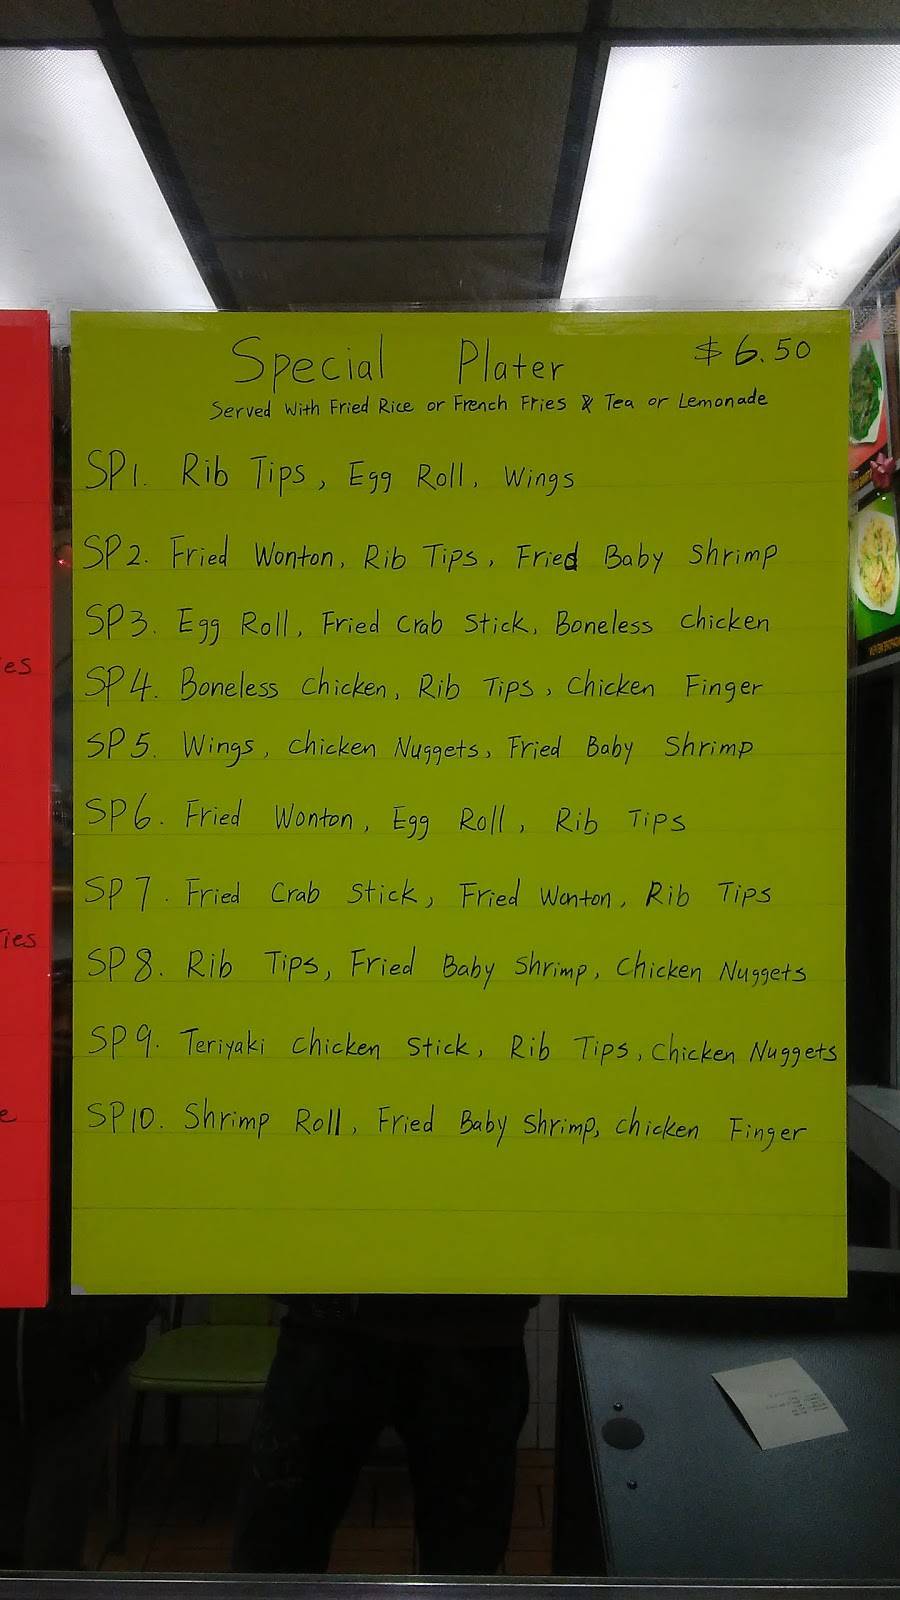 Special Plater $6.50
Served With Fried Rice or French Fries & Tea or Lemonade
SP1. Rib Tips, Egg Roll, Wings
SP2. Fried Wonton, Rib Tips, Fried Baby Shrimp
SP3. Egg Roll, Fried Crab Stick, Boneless Chicken
SP4. Boneless Chicken, Rib Tips, Chicken Finger
SP5. Wings, Chicken Nuggets, Fried Baby Shrimp
SP6. Fried Wonton, Egg Roll, Rib Tips
SP7. Fried Crab Stick, Fried Wonton, Rib Tips
SP8. Rib Tips, Fried Baby Shrimp, Chicken Nuggets
SP9. Teriyaki Chicken Stick, Rib Tips, Chicken Nuggets
SP10. Shrimp Roll, Fried Baby Shrimp, Chicken Finger